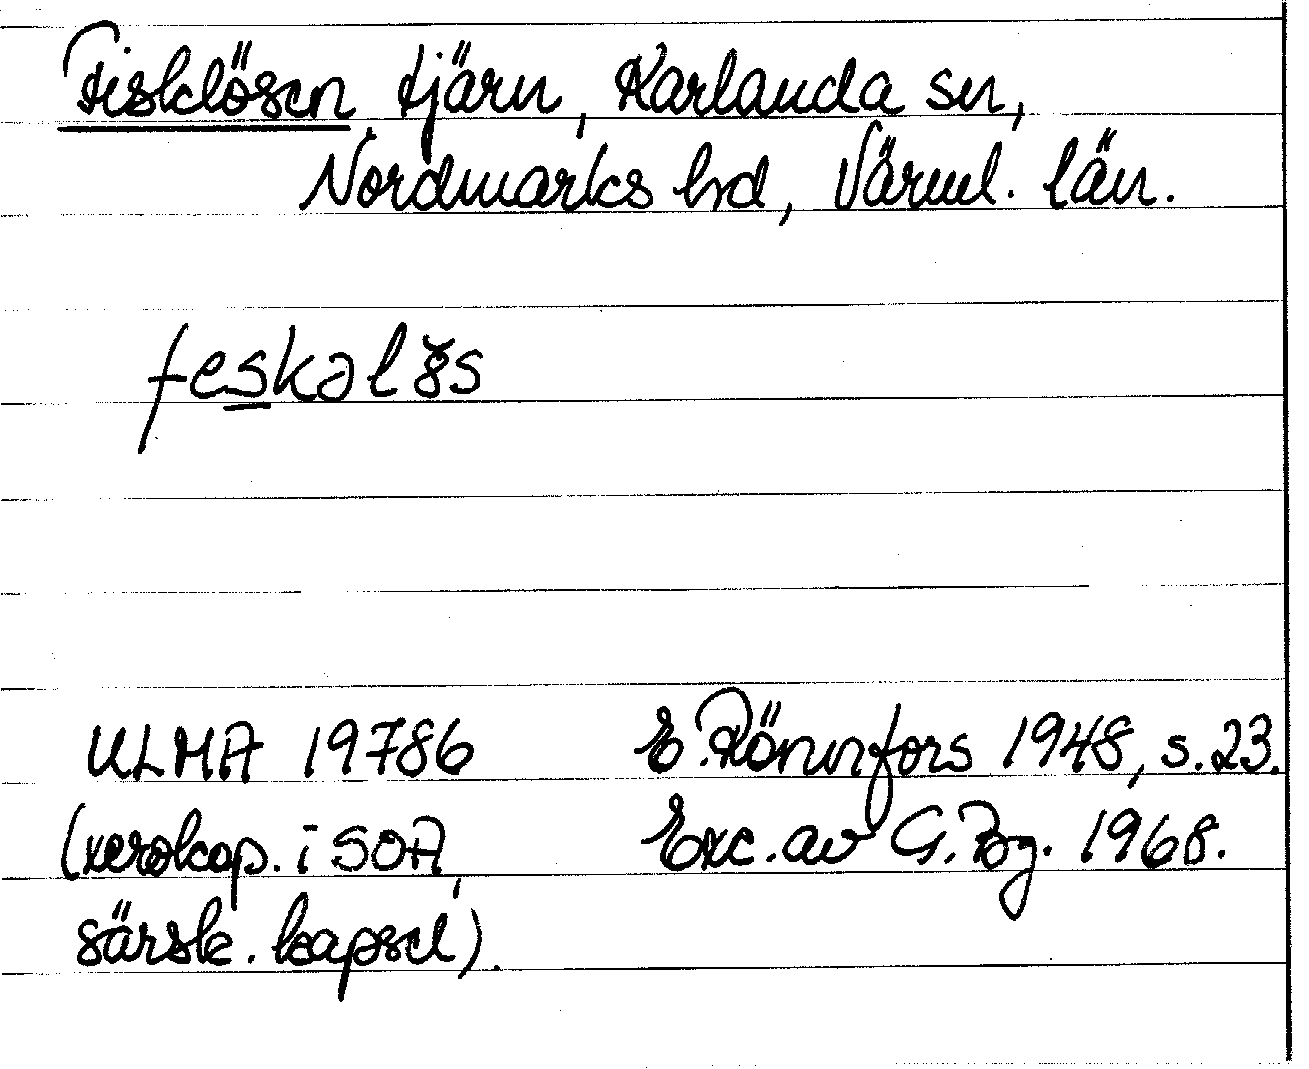 Fisklösen, tjärn, Karlanda sn,
Nordmarks hd, Värml. län.
feskəl
ULMA 19786 E. Rönnfors 1948, s. 23.
(xerokop. i SOA, Exc. av G. Bg. 1968.
särsk. kapsel).